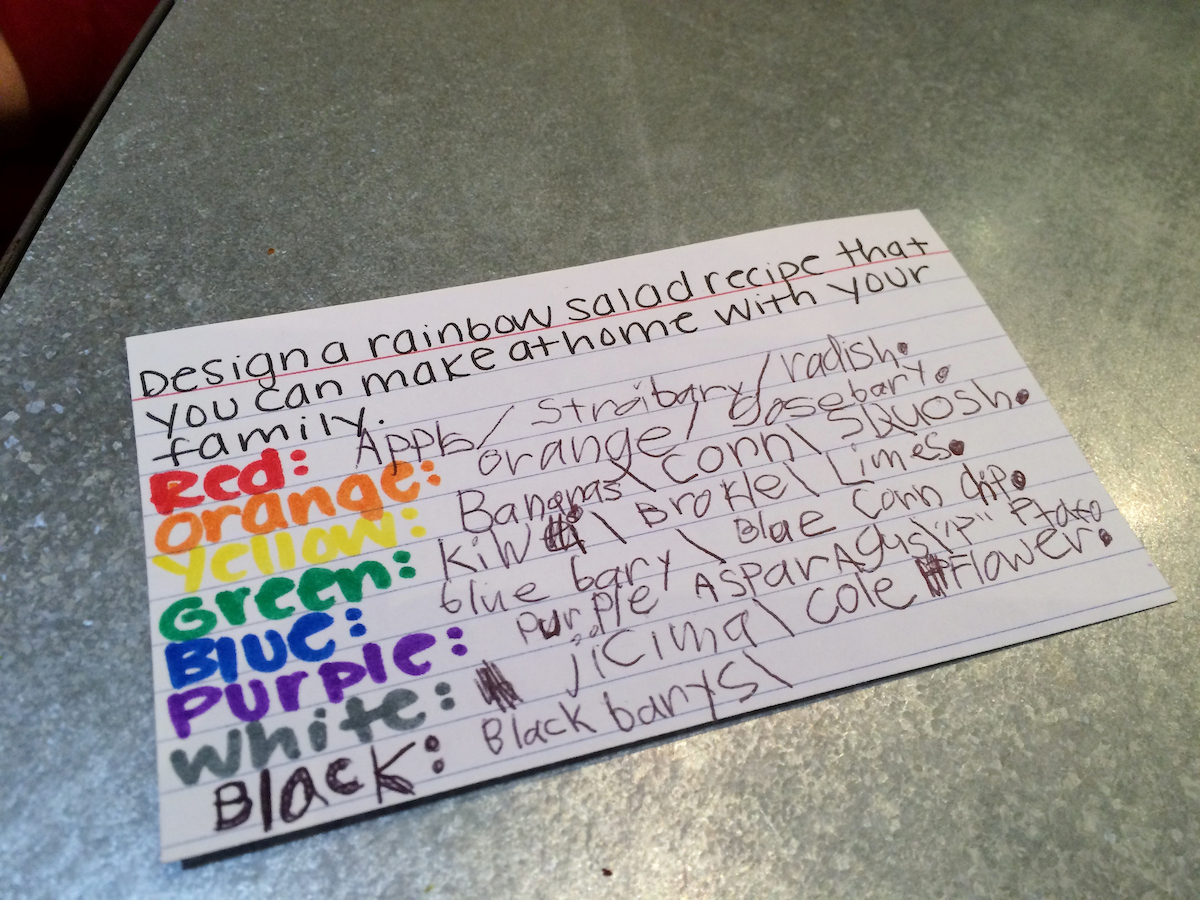 Design a rainbow salad recipe that
you can make at home with your
family.
Red: Apple/ Straibary/ radish.
Orange: orange/ Gosebary.
Yellow: Bananas\ Corn\ Skuosh.
Green: Kiw \ Brokle\ Limes.
Blue: blue bary \ Blae Corn chip.
Purple: purple AsparAgus\ "P" Ptato
White: jicima\ cole Flower.
Black: Black barys\